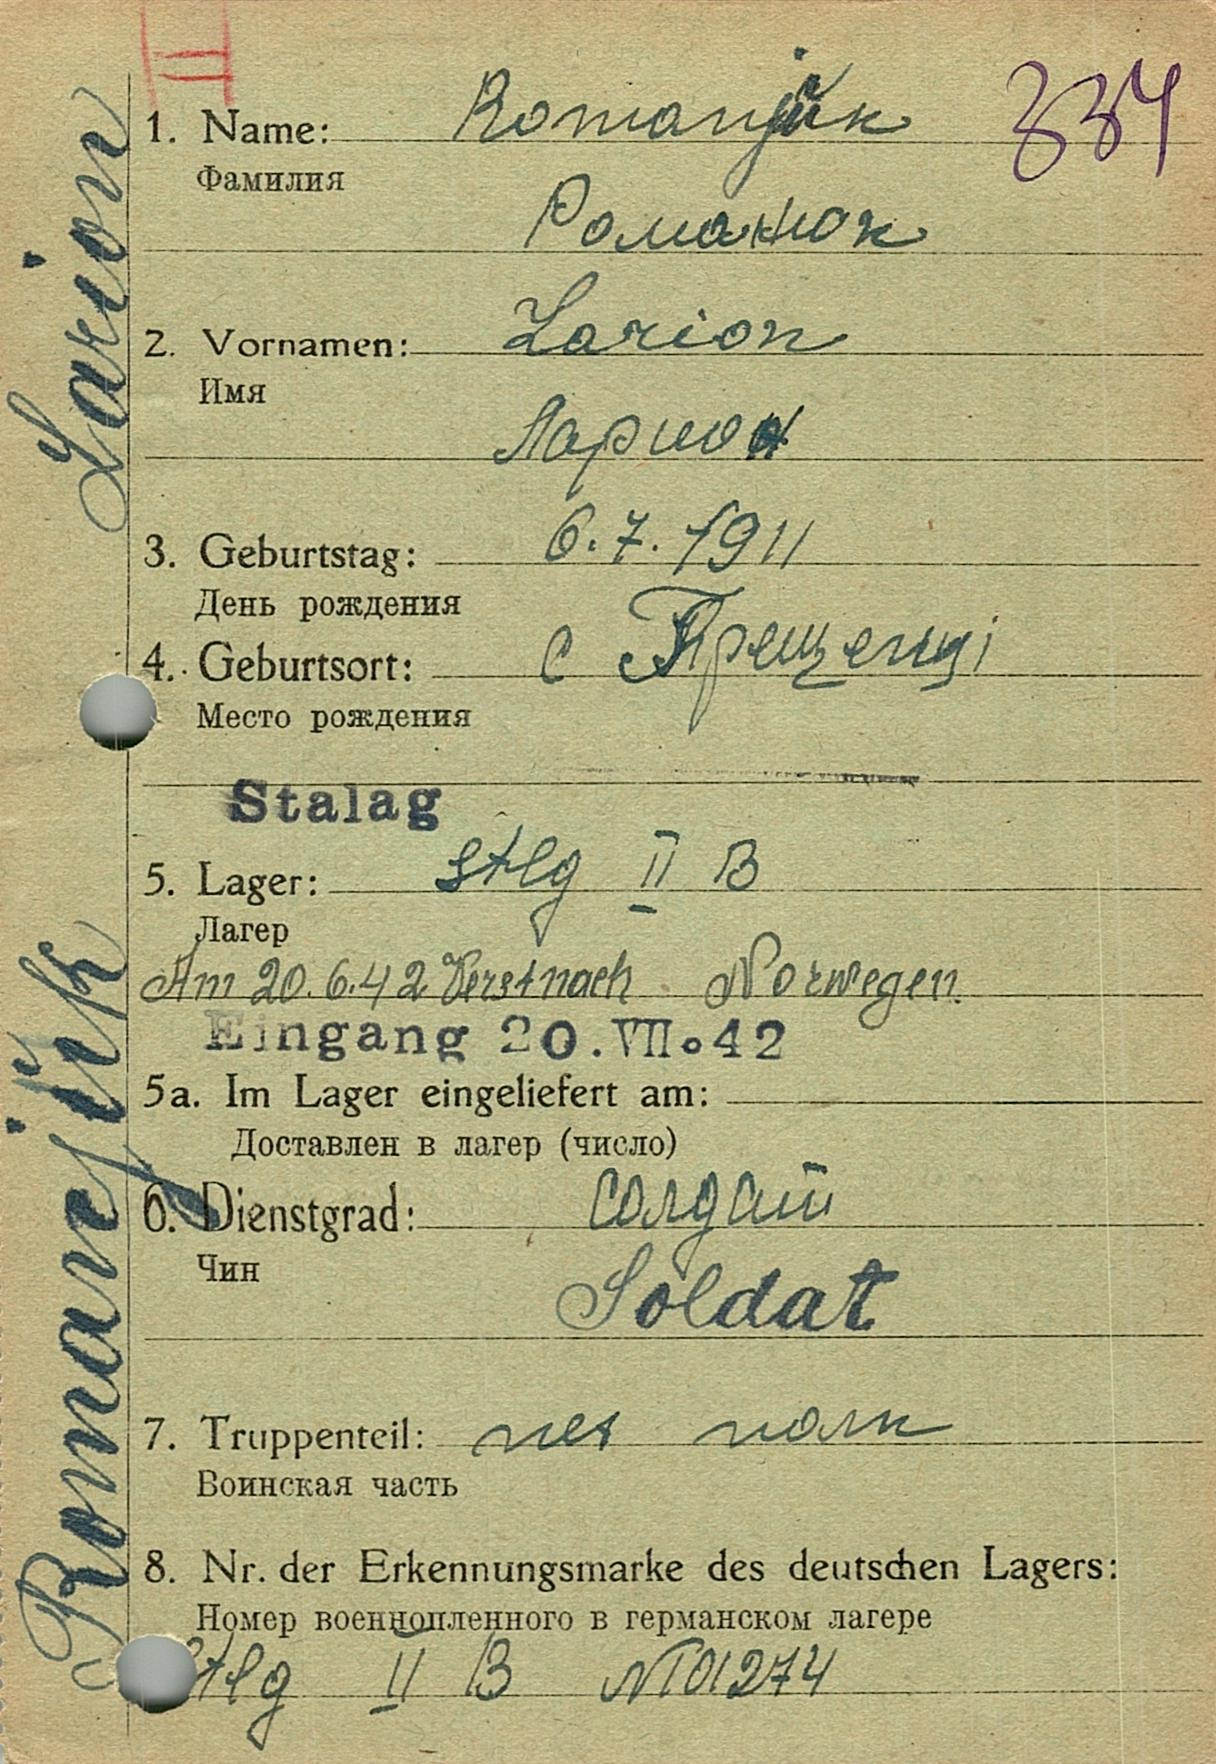 334
1. Name: Romanjuk
Фамилия
Романюк
2. Vornamen: Larion
Имя
Ларион
3. Geburtstag: 6.7.1911
День рождения
4. Geburtsort: с
Место рождения
Stalag
5. Lager: Stlg II B
Лагер
Am 20.6.42 Verst nach Norwegen.
Eingang 20.VII.42
5a. Im Lager eingeliefert am:
Доставлен в лагер (число)
6. Dienstgrad: солдат
Чин
Soldat
7. Truppenteil: пех полк
Воинская часть
8. Nr. der Erkennungsmarke des deutschen Lagers:
Номер военнопленного в германском лагере
Stlg II B №101274
Romanjuk Larion